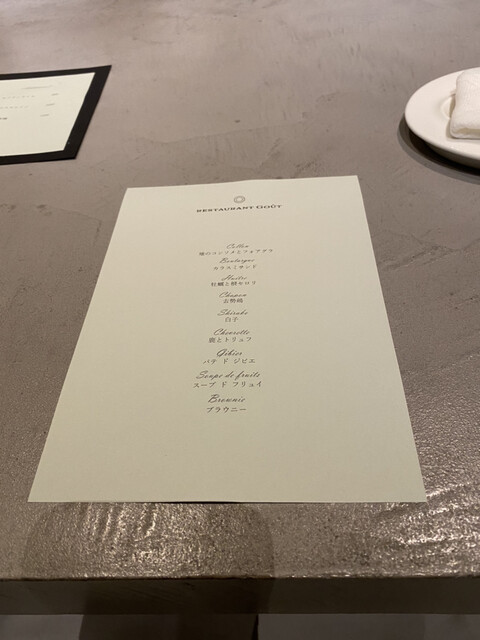 RESTAURANT GOÛT
Caille
鶉のコンソメとフォアグラ
Boutargue
カラスミサンド
Huitre
牡蠣と根セロリ
Chapon
去勢鶏
Shirako
白子
Chevrette
鹿とトリュフ
Gibier
パテ ド ジビエ
Soupe de fruits
スープ ド フリュイ
Brownie
ブラウニー